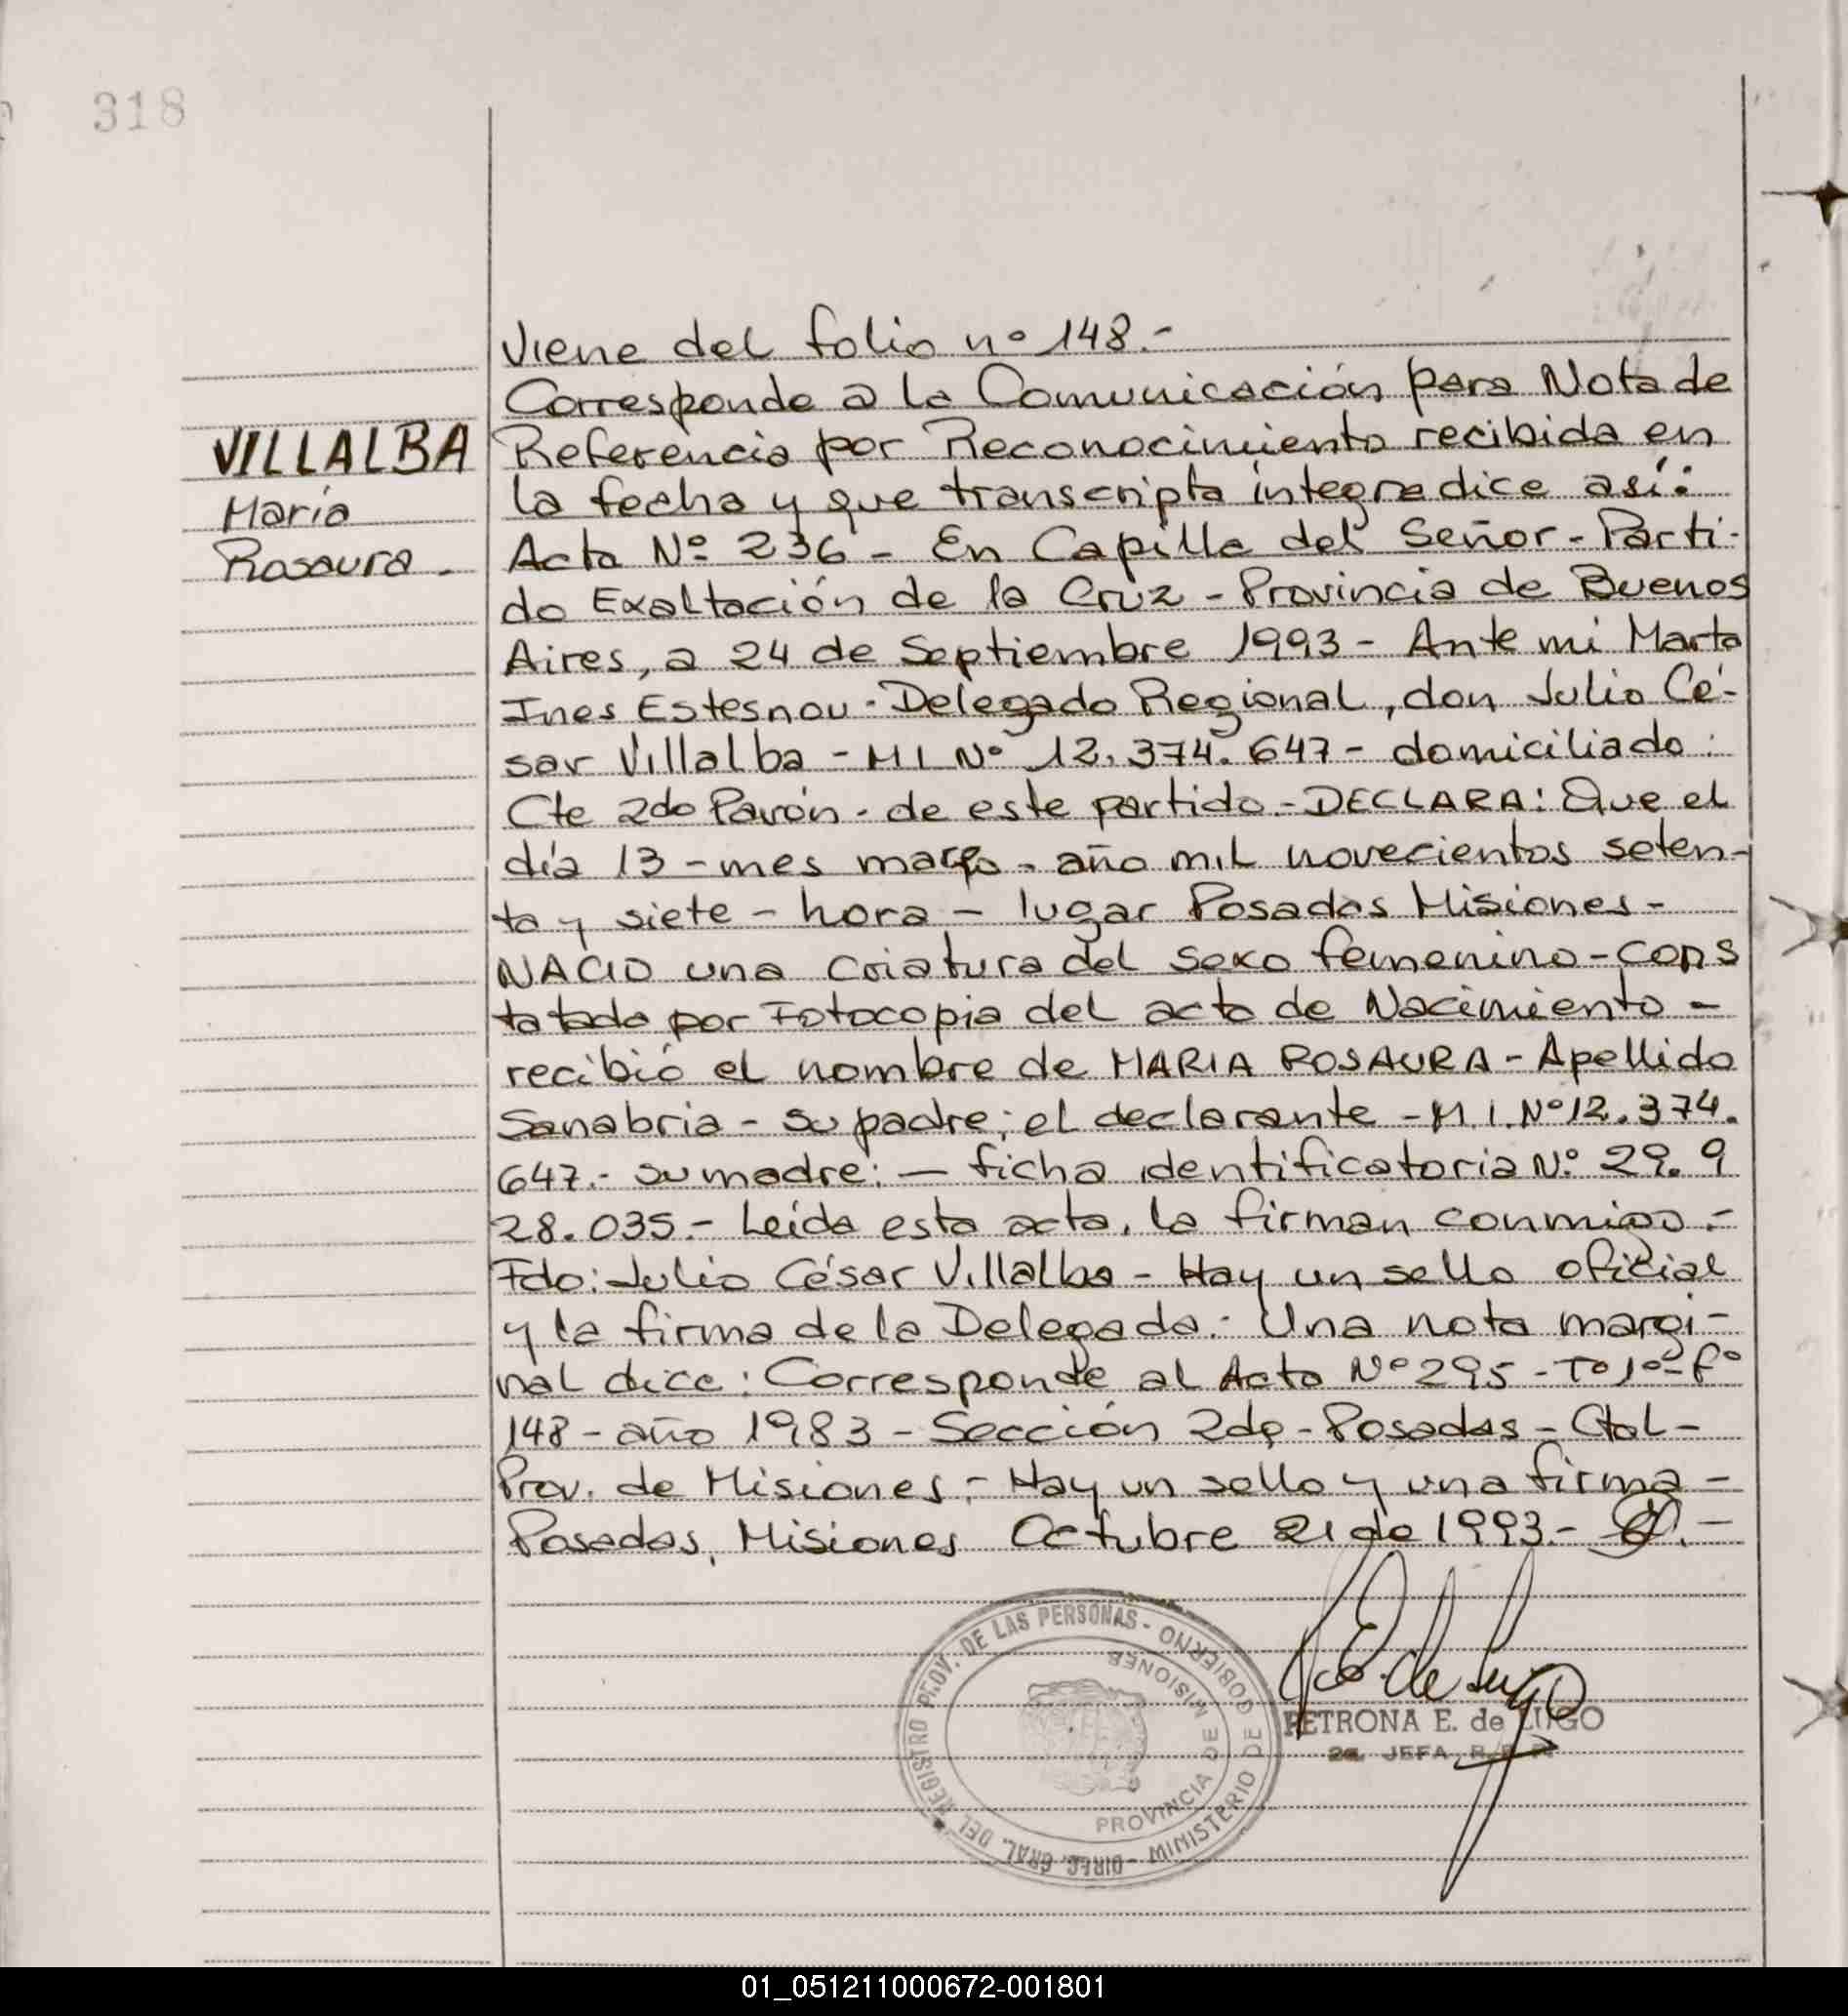 318
Viene del folio nº 148.-
Corresponde a la Comunicación para Nota de
VILLALBA
Referencia por Reconocimiento recibida en
María
la fecha y que transcripta integra dice así:
Rosaura.
Acta Nº 236 - En Capilla del Señor - Parti-
do Exaltación de la Cruz - Provincia de Buenos
Aires, a 24 de Septiembre 1993 - Ante mi Marta
Ines Estesnou - Delegado Regional, don Julio Cé-
sar Villalba - MI Nº 12.374.647 - domiciliado:
Cte 2do Pavón - de este partido - DECLARA: Que el
día 13 - mes março - año mil novecientos seten-
ta y siete - hora - lugar Posadas Misiones -
NACIO una criatura del sexo femenino - cons
tatado por Fotocopia del acta de Nacimiento -
recibió el nombre de MARIA ROSAURA - Apellido
Sanabria - su padre; el declarante - M.I. Nº 12.374.
647.- su madre: — ficha identificatoria Nº 29.9
28.035.- Leída esta acta, la firman conmigo.-
Fdo: Julio César Villalba - Hay un sello oficial
y la firma de la Delegada.- Una nota margi-
nal dice: Corresponde al Acta Nº 295 - Tº 1º - Fº
148 - año 1983 - Sección 2da - Posadas - Ctal -
Prov. de Misiones.- Hay un sello y una firma -
Posadas, Misiones Octubre 21 de 1993.-
E. de Lugo
PETRONA E. de LUGO
2a. JEFA
DIREC. GRAL. DEL REGISTRO PROV. DE LAS PERSONAS - MINISTERIO DE GOBIERNO
PROVINCIA DE MISIONES
01_051211000672-001801